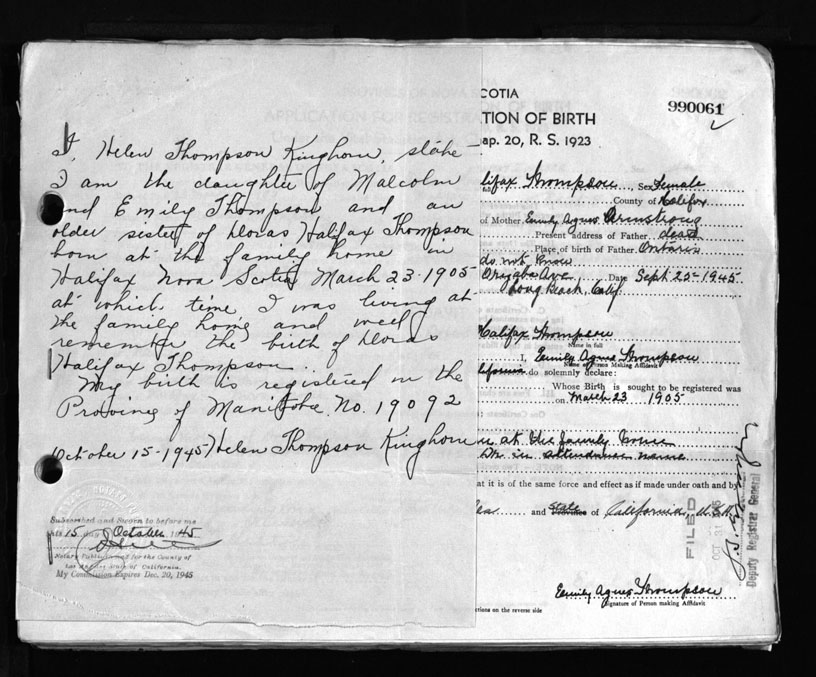 I, Helen Thompson Kinghorn, state
I am the daughter of Malcolm
and Emily Thompson and an
older sister of Doras Halifax Thompson
born at the family home in
Halifax Nova Scotia March 23-1905
at which time I was living at
the family home and well
remember the birth of Doras
Halifax Thompson.
My birth is registered in the
Province of Manitoba No. 19092
October 15-1945 Helen Thompson Kinghorn
Subscribed and Sworn to before me
this 15 day of October 1945
Notary Public and for the County of
Los Angeles State of California.
My Commission Expires Dec. 20, 1945
SCOTIA
990061
2
TION OF BIRTH
ap. 20, R. S. 1923
lifax Thompson, Sex Female
County of Halifax
of Mother Emily Agnes Armstrong
Present address of Father dead
Place of birth of Father Ontario
do not know
Ave. Date Sept 25-1945
Long Beach, Calif.
Halifax Thompson
Name in full
I, Emily Agnes Thompson
Name of Person Making Affidavit
lifornia do solemnly declare:
Whose Birth is sought to be registered was
on March 23 1905
n at the family home
Dr. in attendance name
at it is of the same force and effect as if made under oath and by
and State of California, U.S.A.
FILED
OCT 31
Deputy Registrar General
Emily Agnes Thompson
Signature of Person making Affidavit
ctions on the reverse side